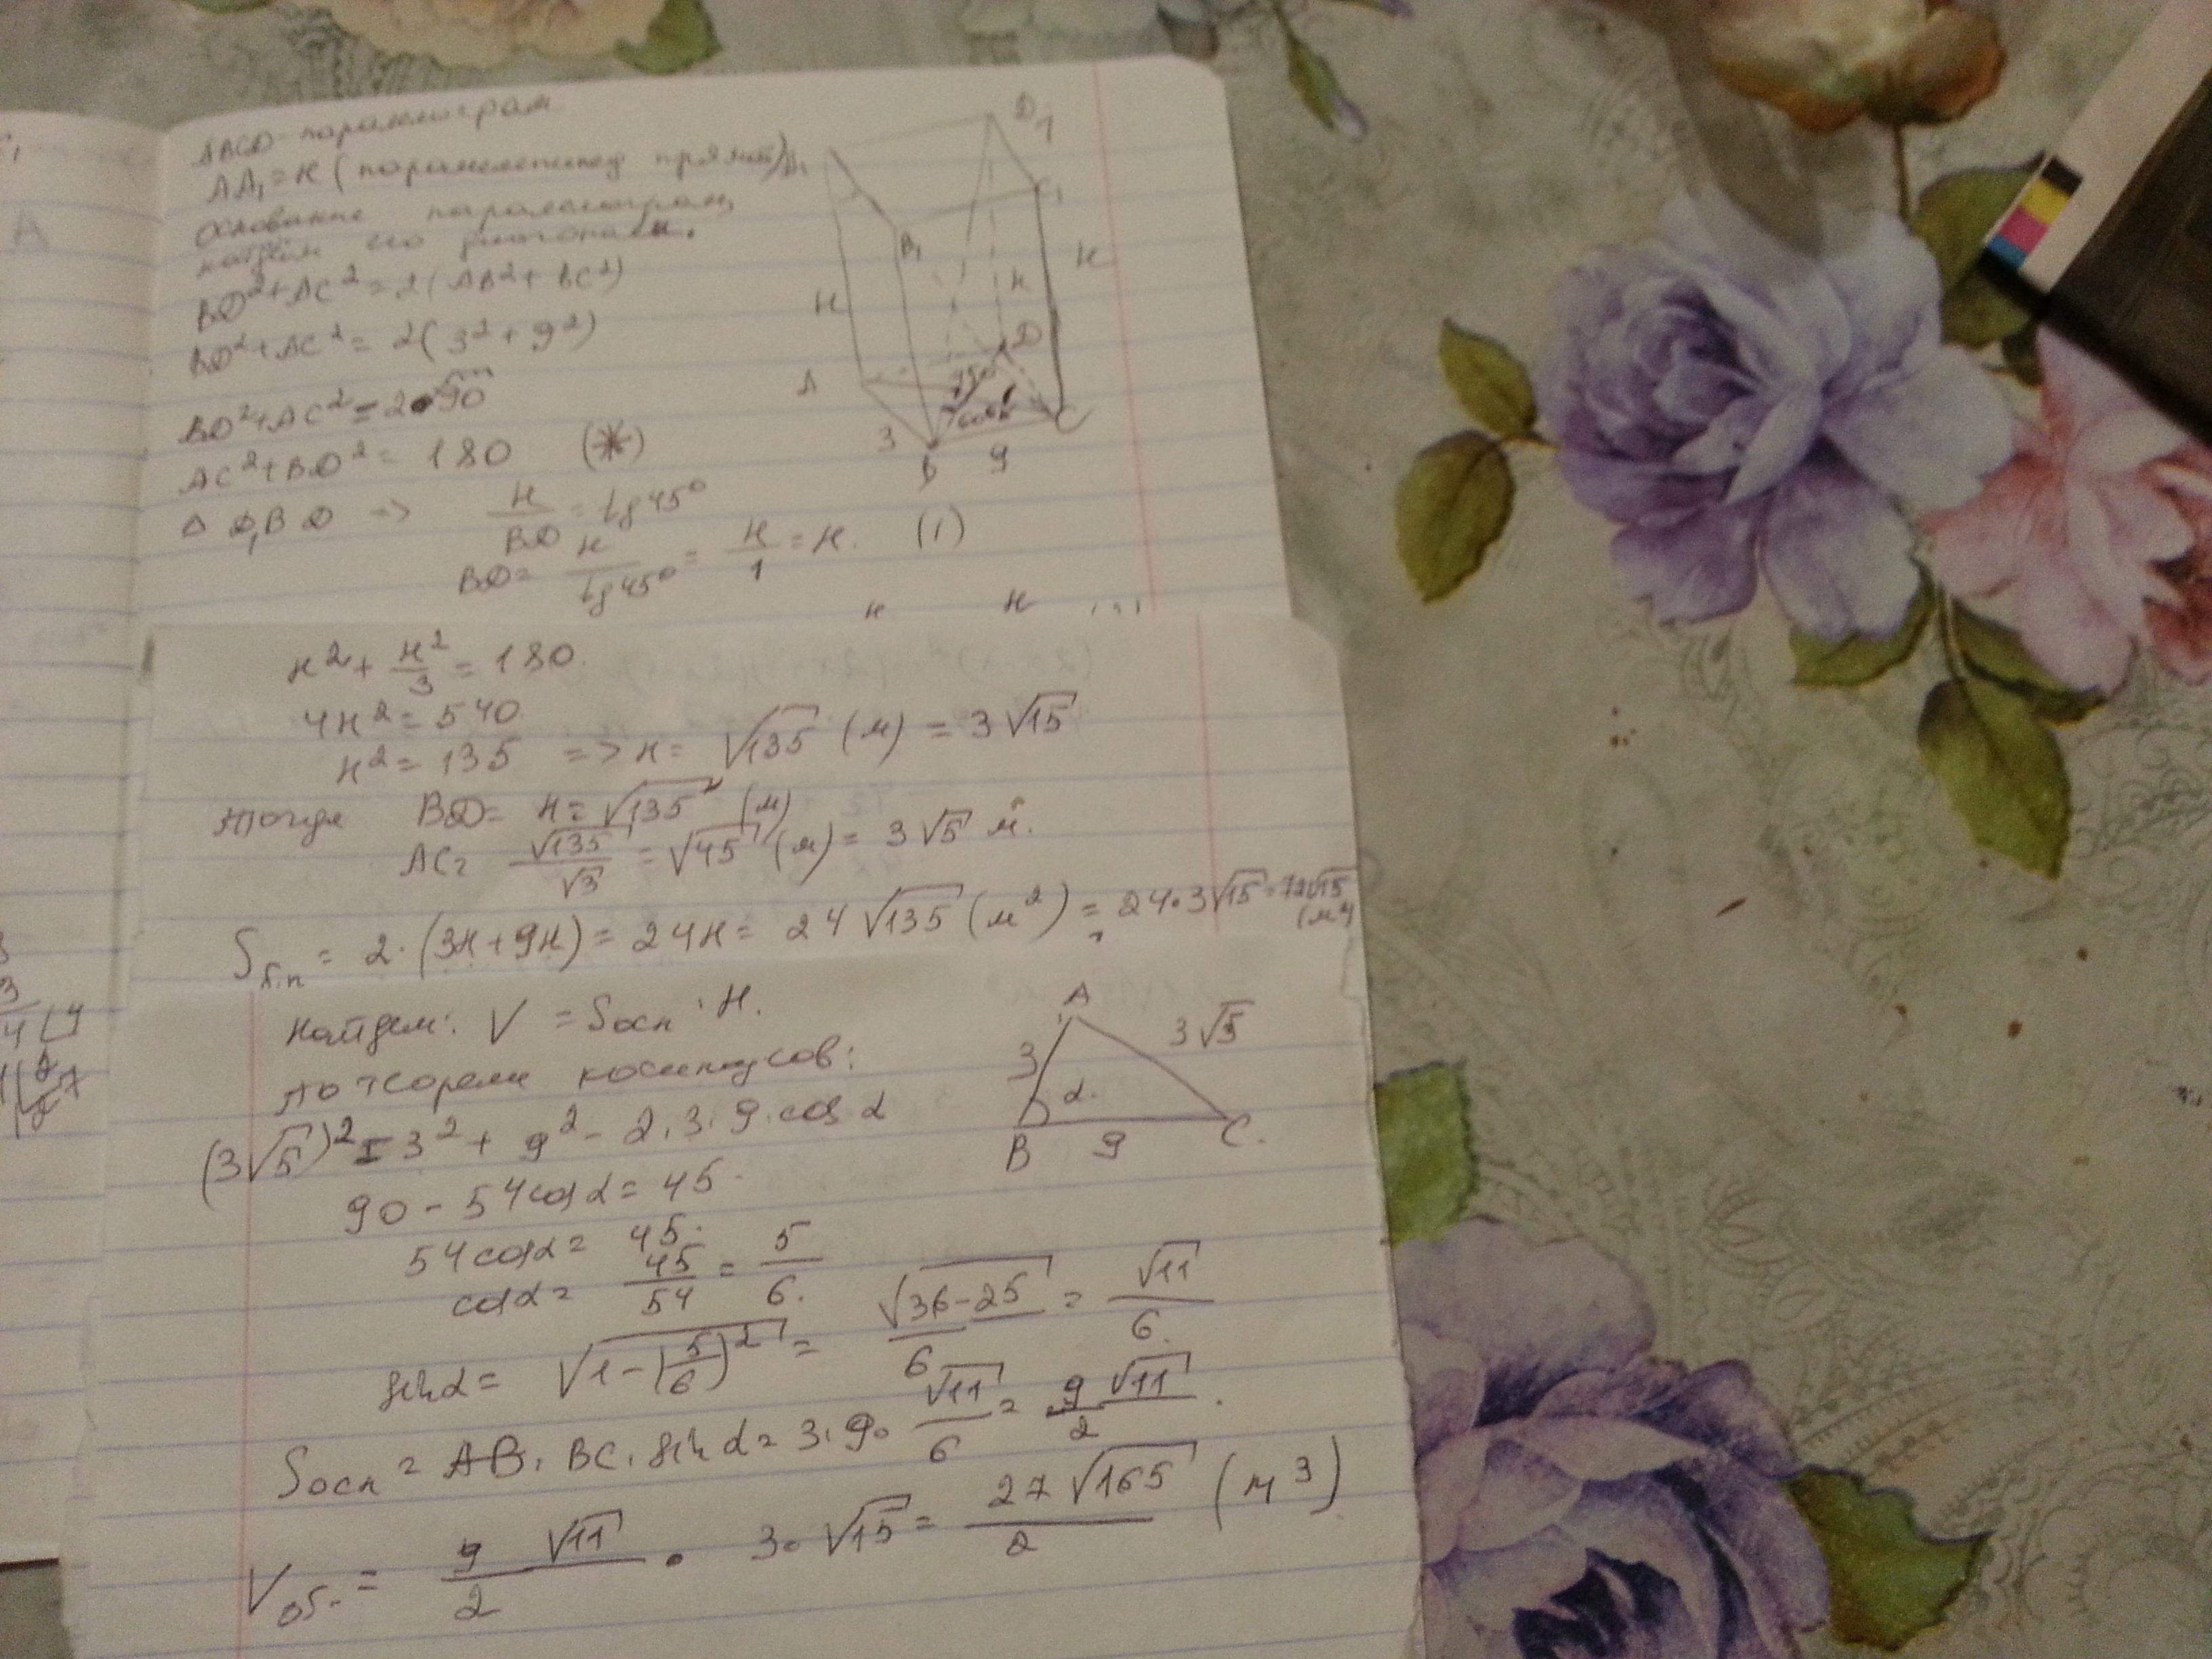 ABCD - параллелограм
AA₁ = H ( параллелепипед прямой)
Основание параллелограм,
найдём его диагонали.
BD² + AC² = 2(AB² + BC²)
BD² + AC² = 2(3² + 9²)
BD² + AC² = 2•90
AC² + BD² = 180 (*)
Δ D₁BD => H/BD = tg 45°
BD = H/tg45° = H/1 = H. (1)
H H
D₁
C₁
B₁
H
H
H
A
D
45°
60°
3
B
9
C
H² + H²/3 = 180.
4H² = 540.
H² = 135 => H = √135 (м) = 3√15
Тогда BD = H = √135 (м)
AC = √135/√3 = √45 (м) = 3√5 м.
Sб.п = 2·(3H + 9H) = 24H = 24√135 (м²) = 24·3√15 = 72√15 (м²)
Найдем: V = Sосн · H.
По теореми косинусов:
(3√5)² = 3² + 9² - 2·3·9·cos α
90 - 54cos α = 45.
54cos α = 45.
cos α = 45/54 = 5/6.
sin α = √1-(5/6)² = √36-25/6 = √11/6.
Sосн = AB · BC · sin α = 3·9· √11/6 = 9√11/2.
Vоб. = 9√11/2 • 3·√15 = 27√165/2 (м³)
A
3
3√5
α.
B
9
C.